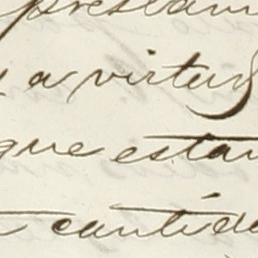 a virtud
que estan
cantida